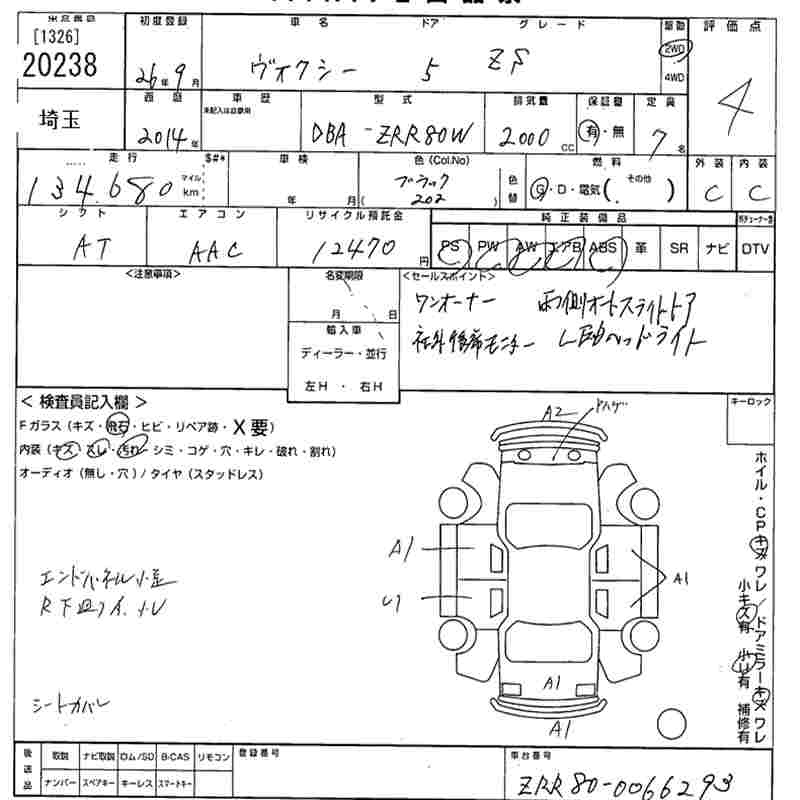 [1326]
20238
埼玉
初度登録
26年9月
車名
ヴォクシー
ドア
5
グレード
ZS
駆動
2WD
4WD
評価点
4
西暦
2014年
車歴
未記入は自家用
型式
DBA-ZRR80W
排気量
2000cc
保証書
有・無
定員
7名
走行
134,680
マイル
km
$#*
車検
年 月
色(Col.No)
ブラック
( 202 )
色替
燃料
G・D・電気( その他 )
外装
C
内装
C
シフト
AT
エアコン
AAC
リサイクル預託金
12470円
純正装備品
PS PW AW エアB ABS 革 SR ナビ DTV
<注意事項>
名変期限
月 日
輸入車
ディーラー・並行
左H・右H
<セールスポイント>
ワンオーナー 両側オートスライドドア
社外後席モニター LEDヘッドライト
<検査員記入欄>
Fガラス(キズ・飛石・ヒビ・リペア跡・X要)
内装(キズ・スレ・汚れ・シミ・コゲ・穴・キレ・破れ・割れ)
オーディオ(無し・穴)/タイヤ(スタッドレス)
キーロック
A2
A1
A1
U1
A1
A1
エンドパネル小歪
シートカバー
ホイル・CPキズワレ/ドアミラーキズワレ
小キズ有 小U有 補修有
後送品
取説 ナビ取説 ロム/SD B-CAS リモコン
ナンバー スペアキー キーレス スマートキー
登録番号
車台番号
ZRR80-0066293